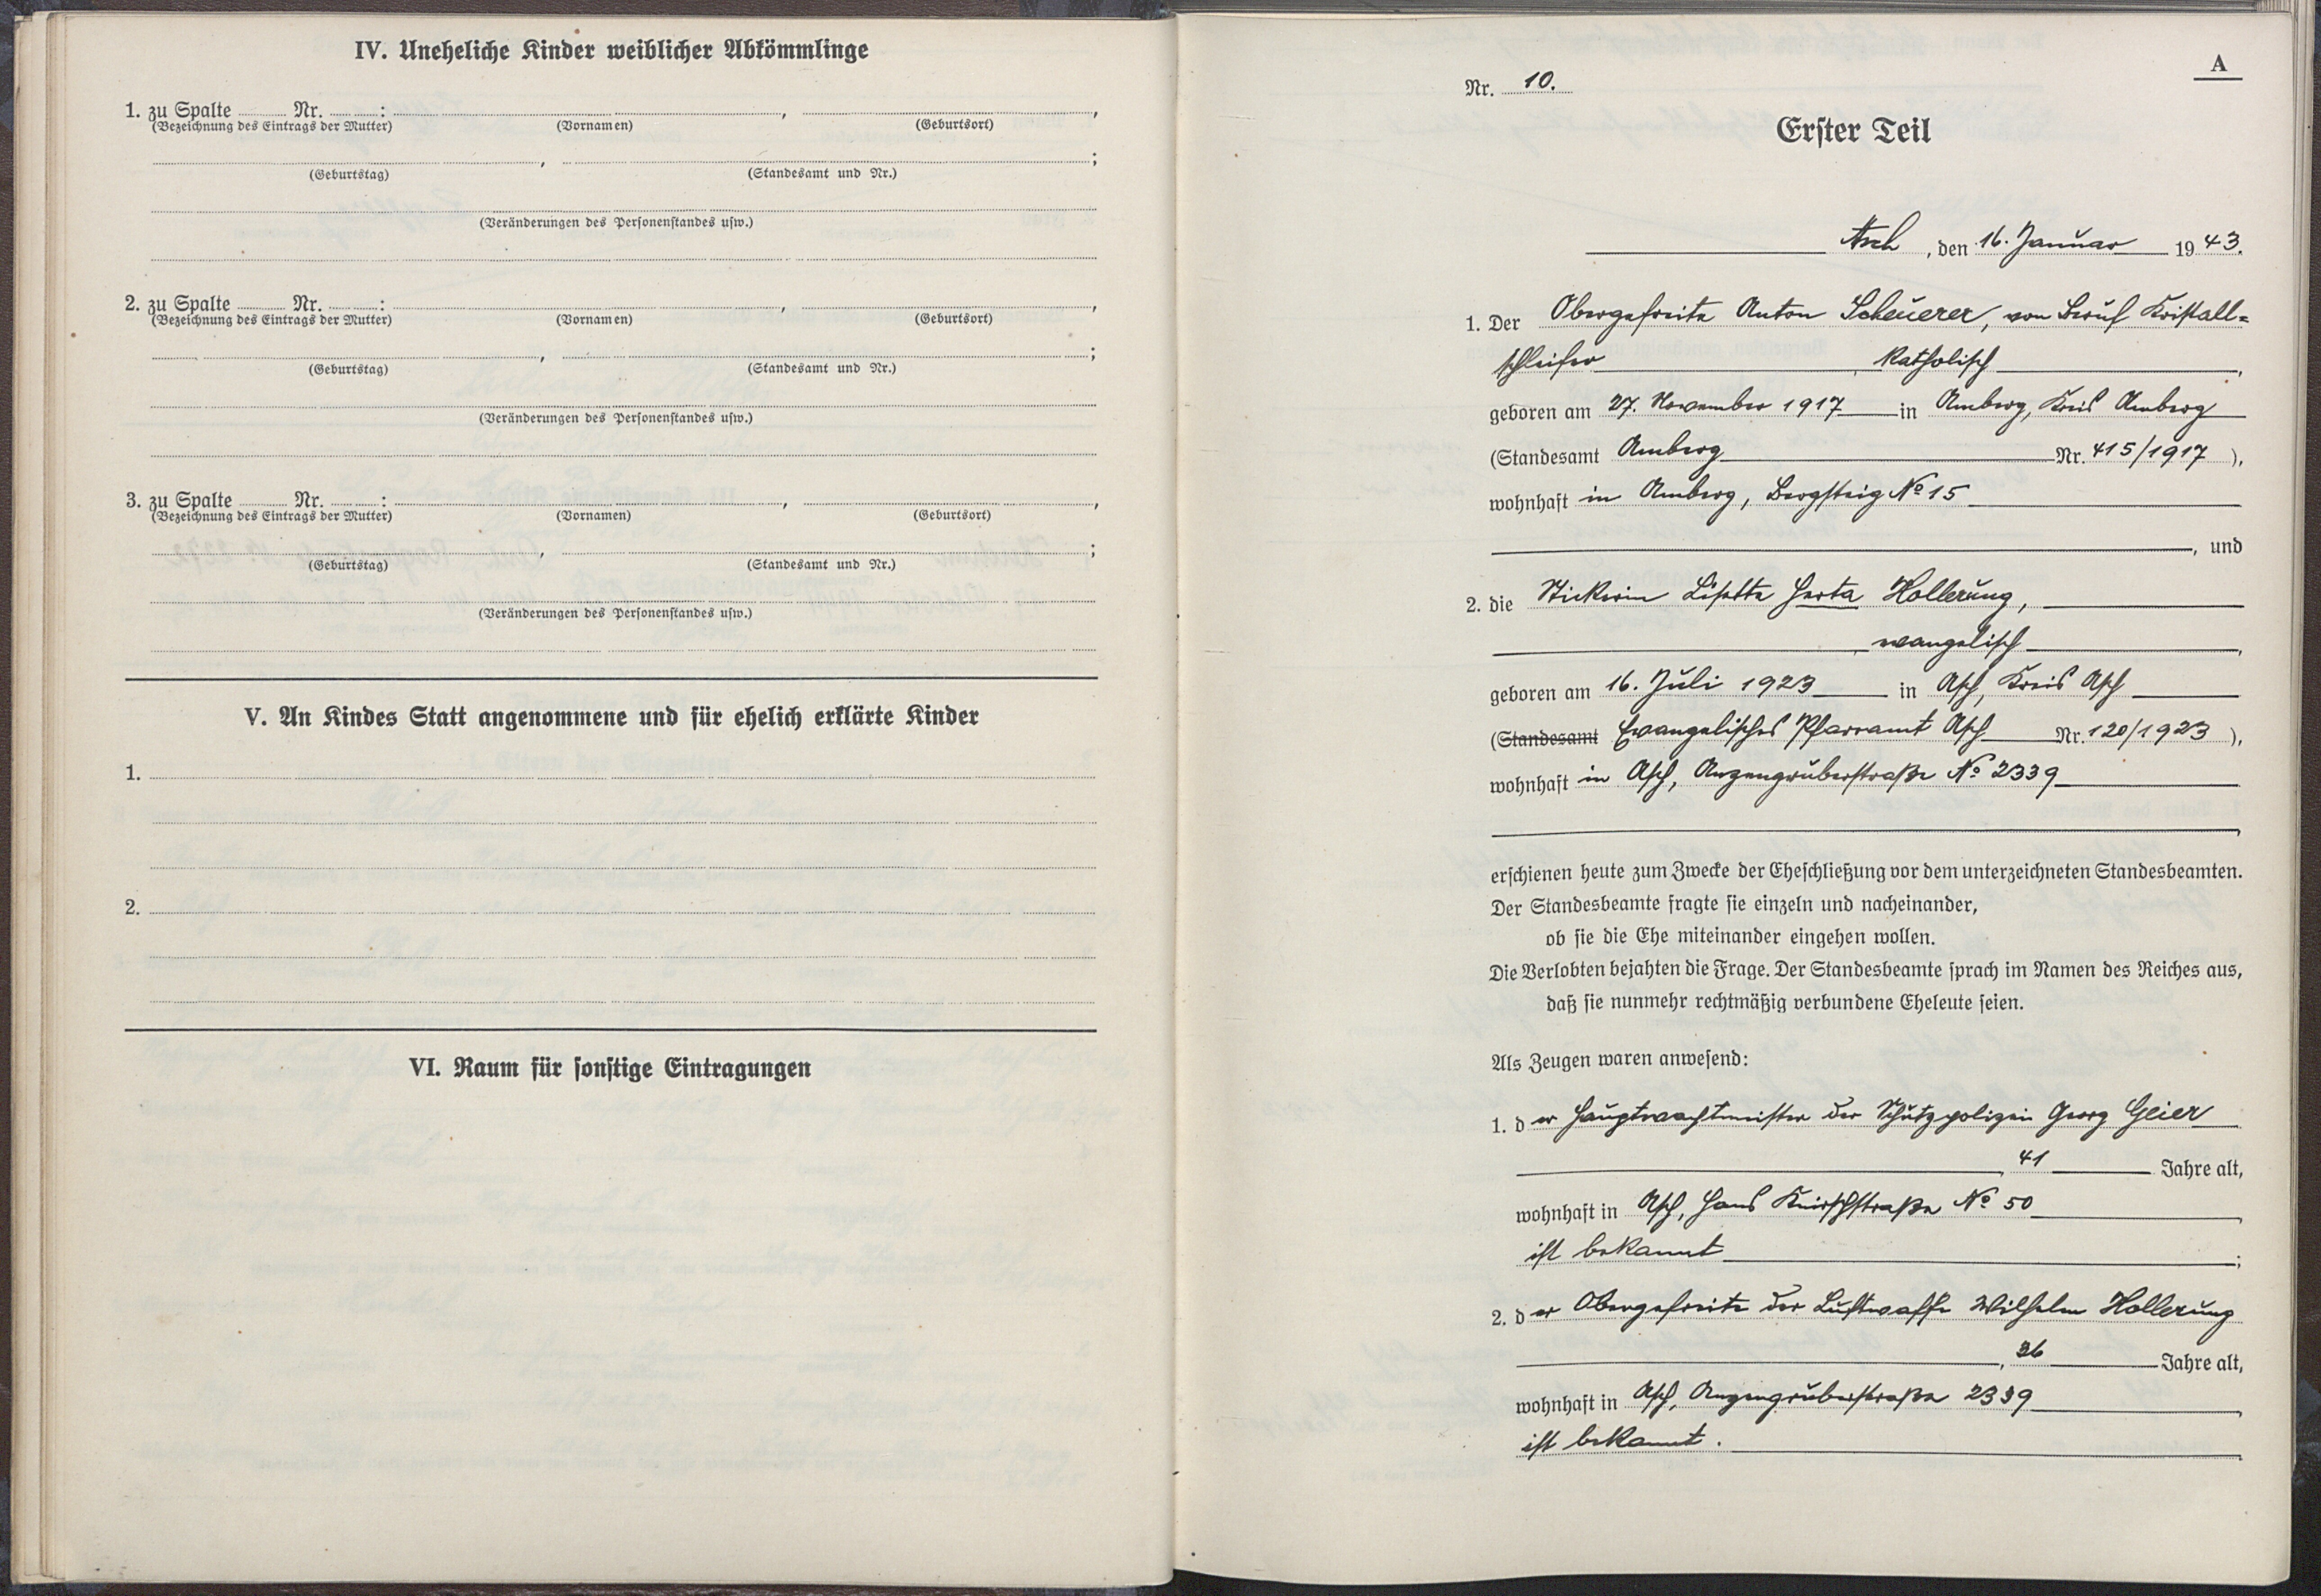 IV. Uneheliche Kinder weiblicher Abkömmlinge
1. zu Spalte Nr. : , ,
(Bezeichnung des Eintrags der Mutter) (Vornamen) (Geburtsort)
, ;
(Geburtstag) (Standesamt und Nr.)
(Veränderungen des Personenstandes usw.)
2. zu Spalte Nr. : , ,
(Bezeichnung des Eintrags der Mutter) (Vornamen) (Geburtsort)
, ;
(Geburtstag) (Standesamt und Nr.)
(Veränderungen des Personenstandes usw.)
3. zu Spalte Nr. : , ,
(Bezeichnung des Eintrags der Mutter) (Vornamen) (Geburtsort)
, ;
(Geburtstag) (Standesamt und Nr.)
(Veränderungen des Personenstandes usw.)
V. An Kindes Statt angenommene und für ehelich erklärte Kinder
1.
2.
VI. Raum für sonstige Eintragungen
A
Nr. 10.
Erster Teil
Asch, den 16. Januar 1943.
1. Der Obergefreite Anton Scheuerer, von Beruf Kristall=
schleifer, katholisch,
geboren am 27. November 1917 in Amberg, Kreis Amberg
(Standesamt Amberg Nr. 415/1917),
wohnhaft in Amberg, Bergsteig No 15
, und
2. die Stickerin Lisette Herta Hollerung,
, evangelisch,
geboren am 16. Juli 1923 in Asch, Kreis Asch
(Standesamt Evangelisches Pfarramt Asch Nr. 120/1923),
wohnhaft in Asch, Anzengruberstraße No 2339
,
erschienen heute zum Zwecke der Eheschließung vor dem unterzeichneten Standesbeamten.
Der Standesbeamte fragte sie einzeln und nacheinander,
ob sie die Ehe miteinander eingehen wollen.
Die Verlobten bejahten die Frage. Der Standesbeamte sprach im Namen des Reiches aus,
daß sie nunmehr rechtmäßig verbundene Eheleute seien.
Als Zeugen waren anwesend:
1. der Hauptwachtmeister der Schutzpolizei Georg Geier
, 41 Jahre alt,
wohnhaft in Asch, Hans Knirschstraße No 50,
ist bekannt;
2. der Obergefreite der Luftwaffe Wilhelm Hollerung
, 36 Jahre alt,
wohnhaft in Asch, Anzengruberstraße 2339,
ist bekannt.